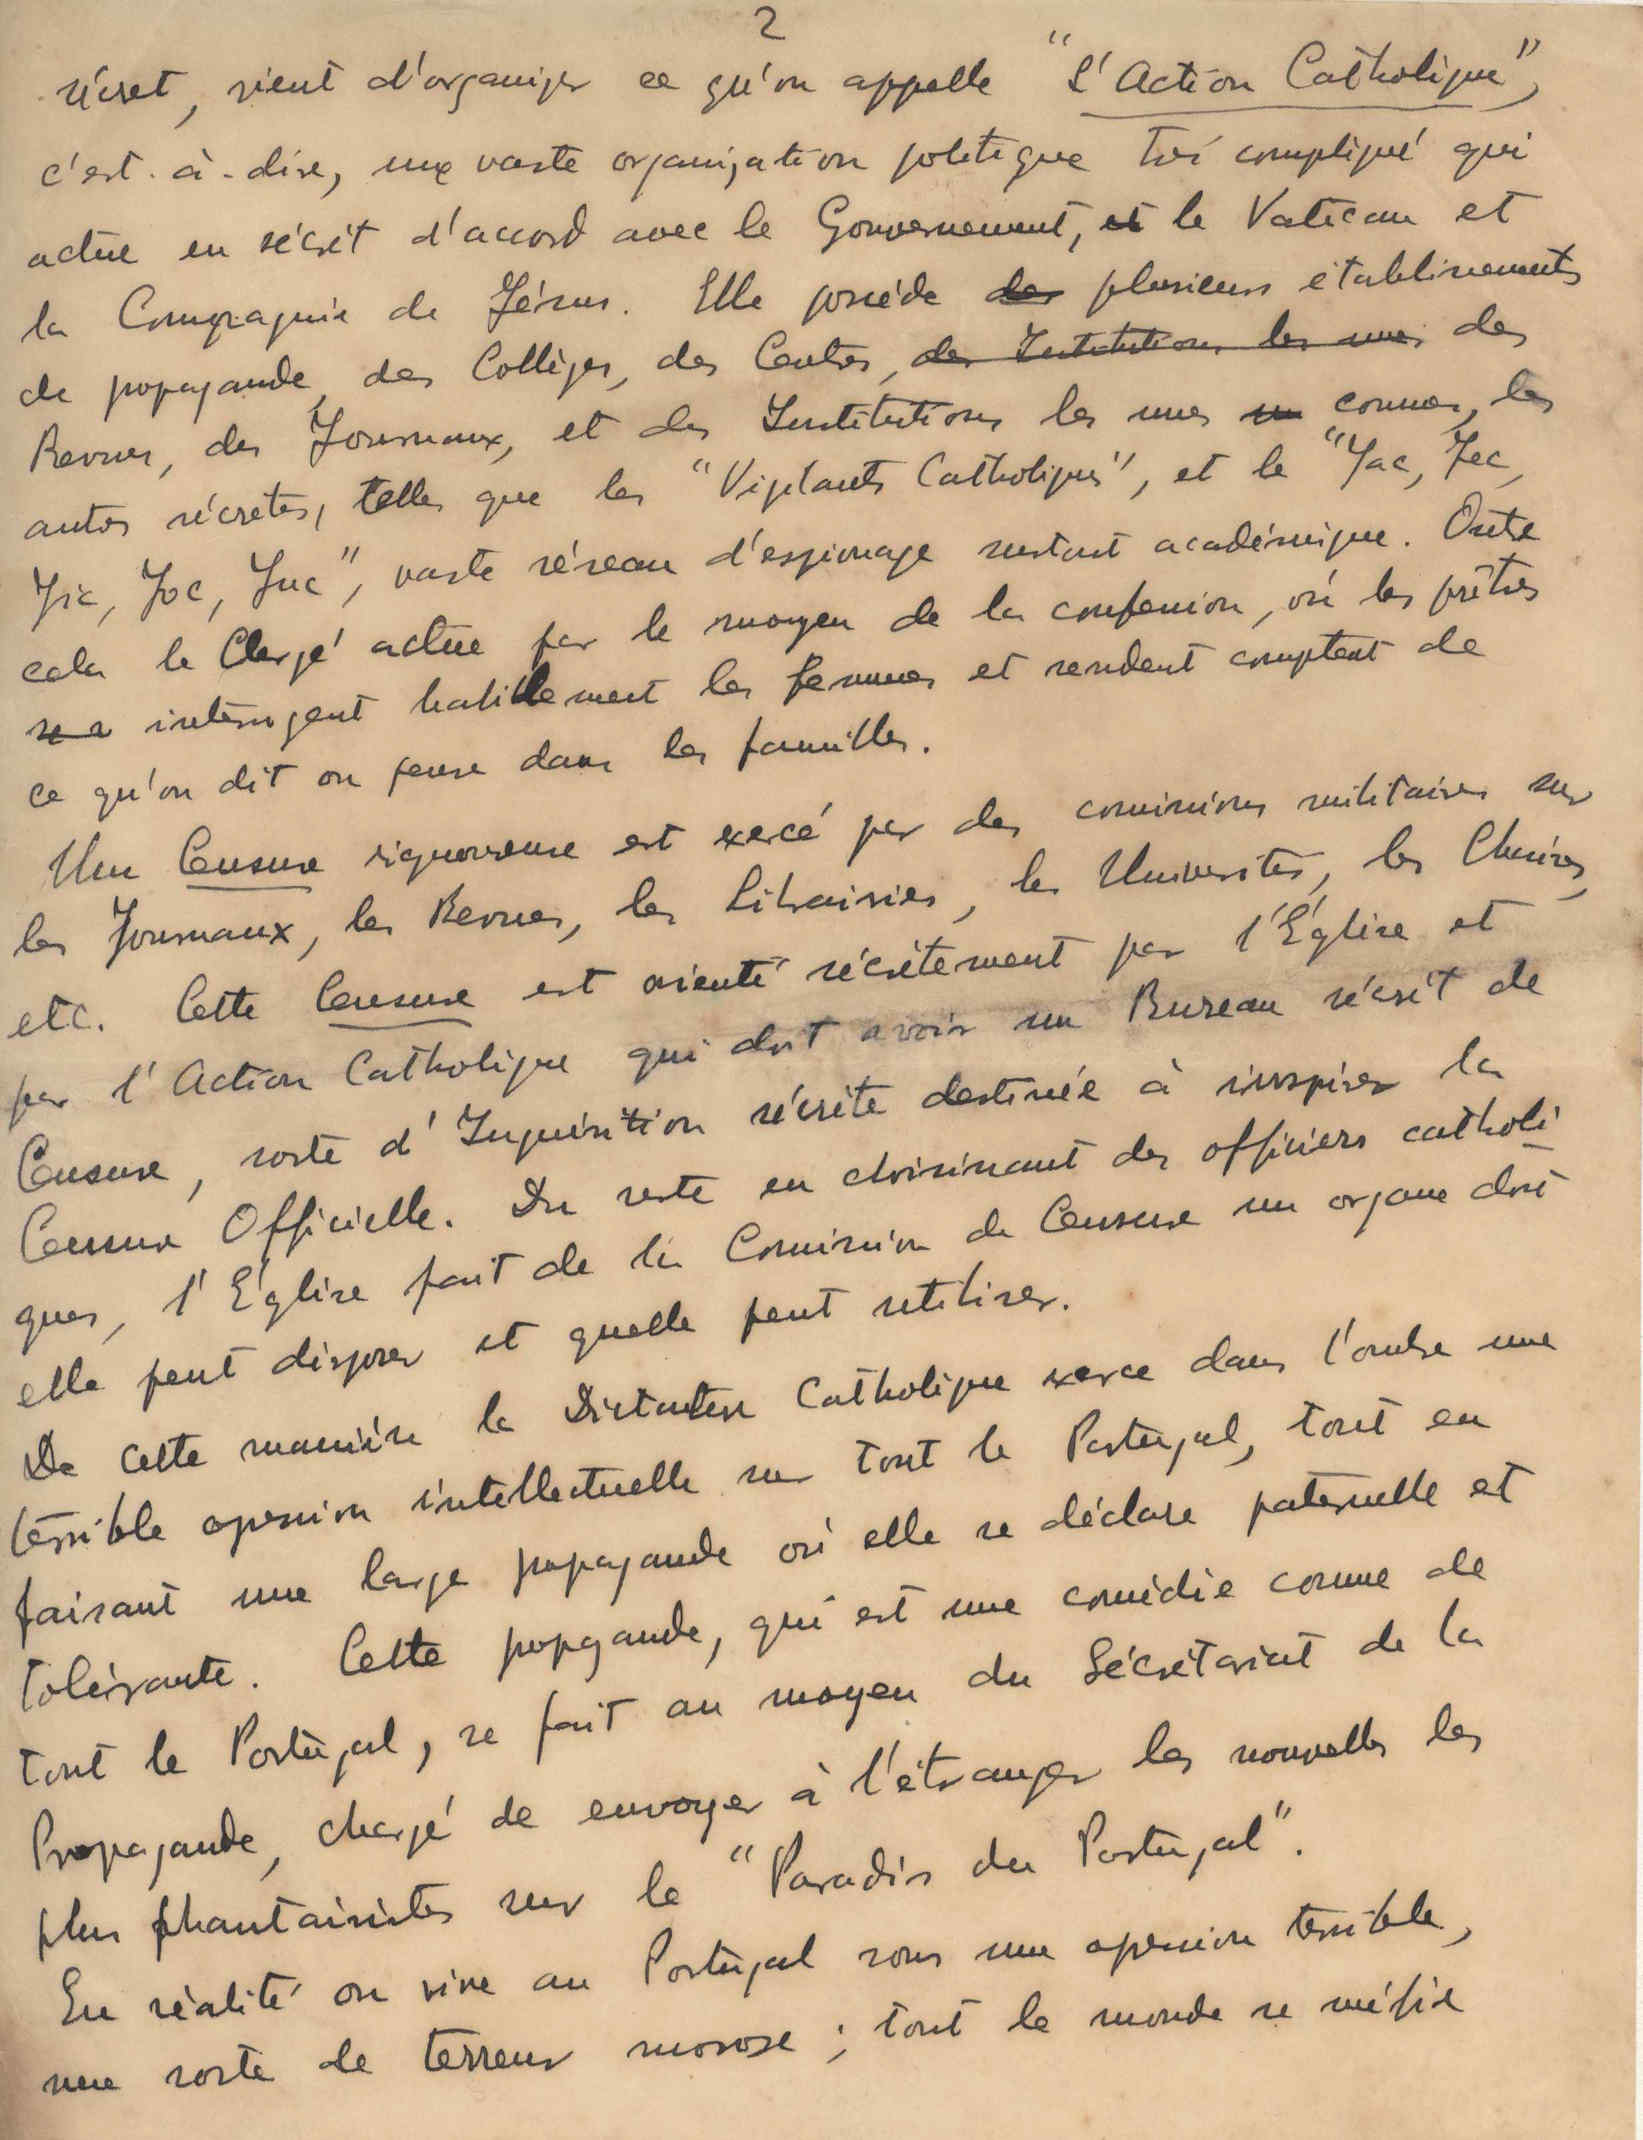 2
sécret, vient d'organiser ce qu'on appelle "L'Action Catholique",
c'est-à-dire, une vaste organisation politique trés compliqué qui
actue en sécrèt d'accord avec le Gouvernement, et le Vatican et
la Compagnie de Jésus. Elle posséde des plusieurs établissements
de propagande, des Collèges, des Centres, des Institutions les unes des
Revues, des Journaux, et des Institutions les unes connues, les
autres sécrètes, telles que les "Vigilants Catholiques", et le "Jac, Jec,
Jic, Joc, Juc", vaste réseau d'espionage surtout académique. Outre
cela le Clergé actue par le moyen de la confession, où les prêtres
interrogent habillement les femmes et rendent comptent de
ce qu'on dit ou pense dans les familles.
Une Censure rigoureuse est exercé par des comissions militaires sur
les Journaux, les Revues, les Librairies, les Universités, les Chaires,
etc. Cette Censure est orienté sécrètement par l'Église et
par l'Action Catholique qui doit avoir un Bureau sécrèt de
Censure, sorte d'Inquisition sécrète destinée à inspirer la
Censure Officielle. Du reste en choisissant des officiers catholi-
ques, l'Église fait de la Comission de Censure un organe dont
elle peut disposer et quelle peut utiliser.
De cette manière la Dictature Catholique exerce dans l'ombre une
terrible opression intellectuelle sur tout le Portugal, tout en
faisant une large propagande où elle se déclare paternelle et
tolérante. Cette propagande, qui est une comédie comme de
tout le Portugal, se fait au moyen du Sécrétariat de la
Propagande, chargé de envoyer à l'étranger les nouvelles les
plus phantaisistes sur le "Paradis du Portugal".
En réalité on vive au Portugal sous une opression terrible,
une sorte de terreur morose; tout le monde se méfie